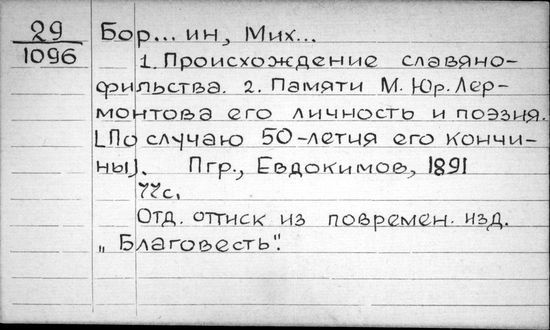 29
1096
Бор... ин, Мих...
1. Происхождение славяно-
фильства. 2. Памяти М. Юр. Лер-
монтова его личность и поэзия.
[По случаю 50-летия его кончи-
ны]. Пгр., Евдокимов, 1891
77с.
Отд. оттиск из повремен. изд.
„Благовесть".